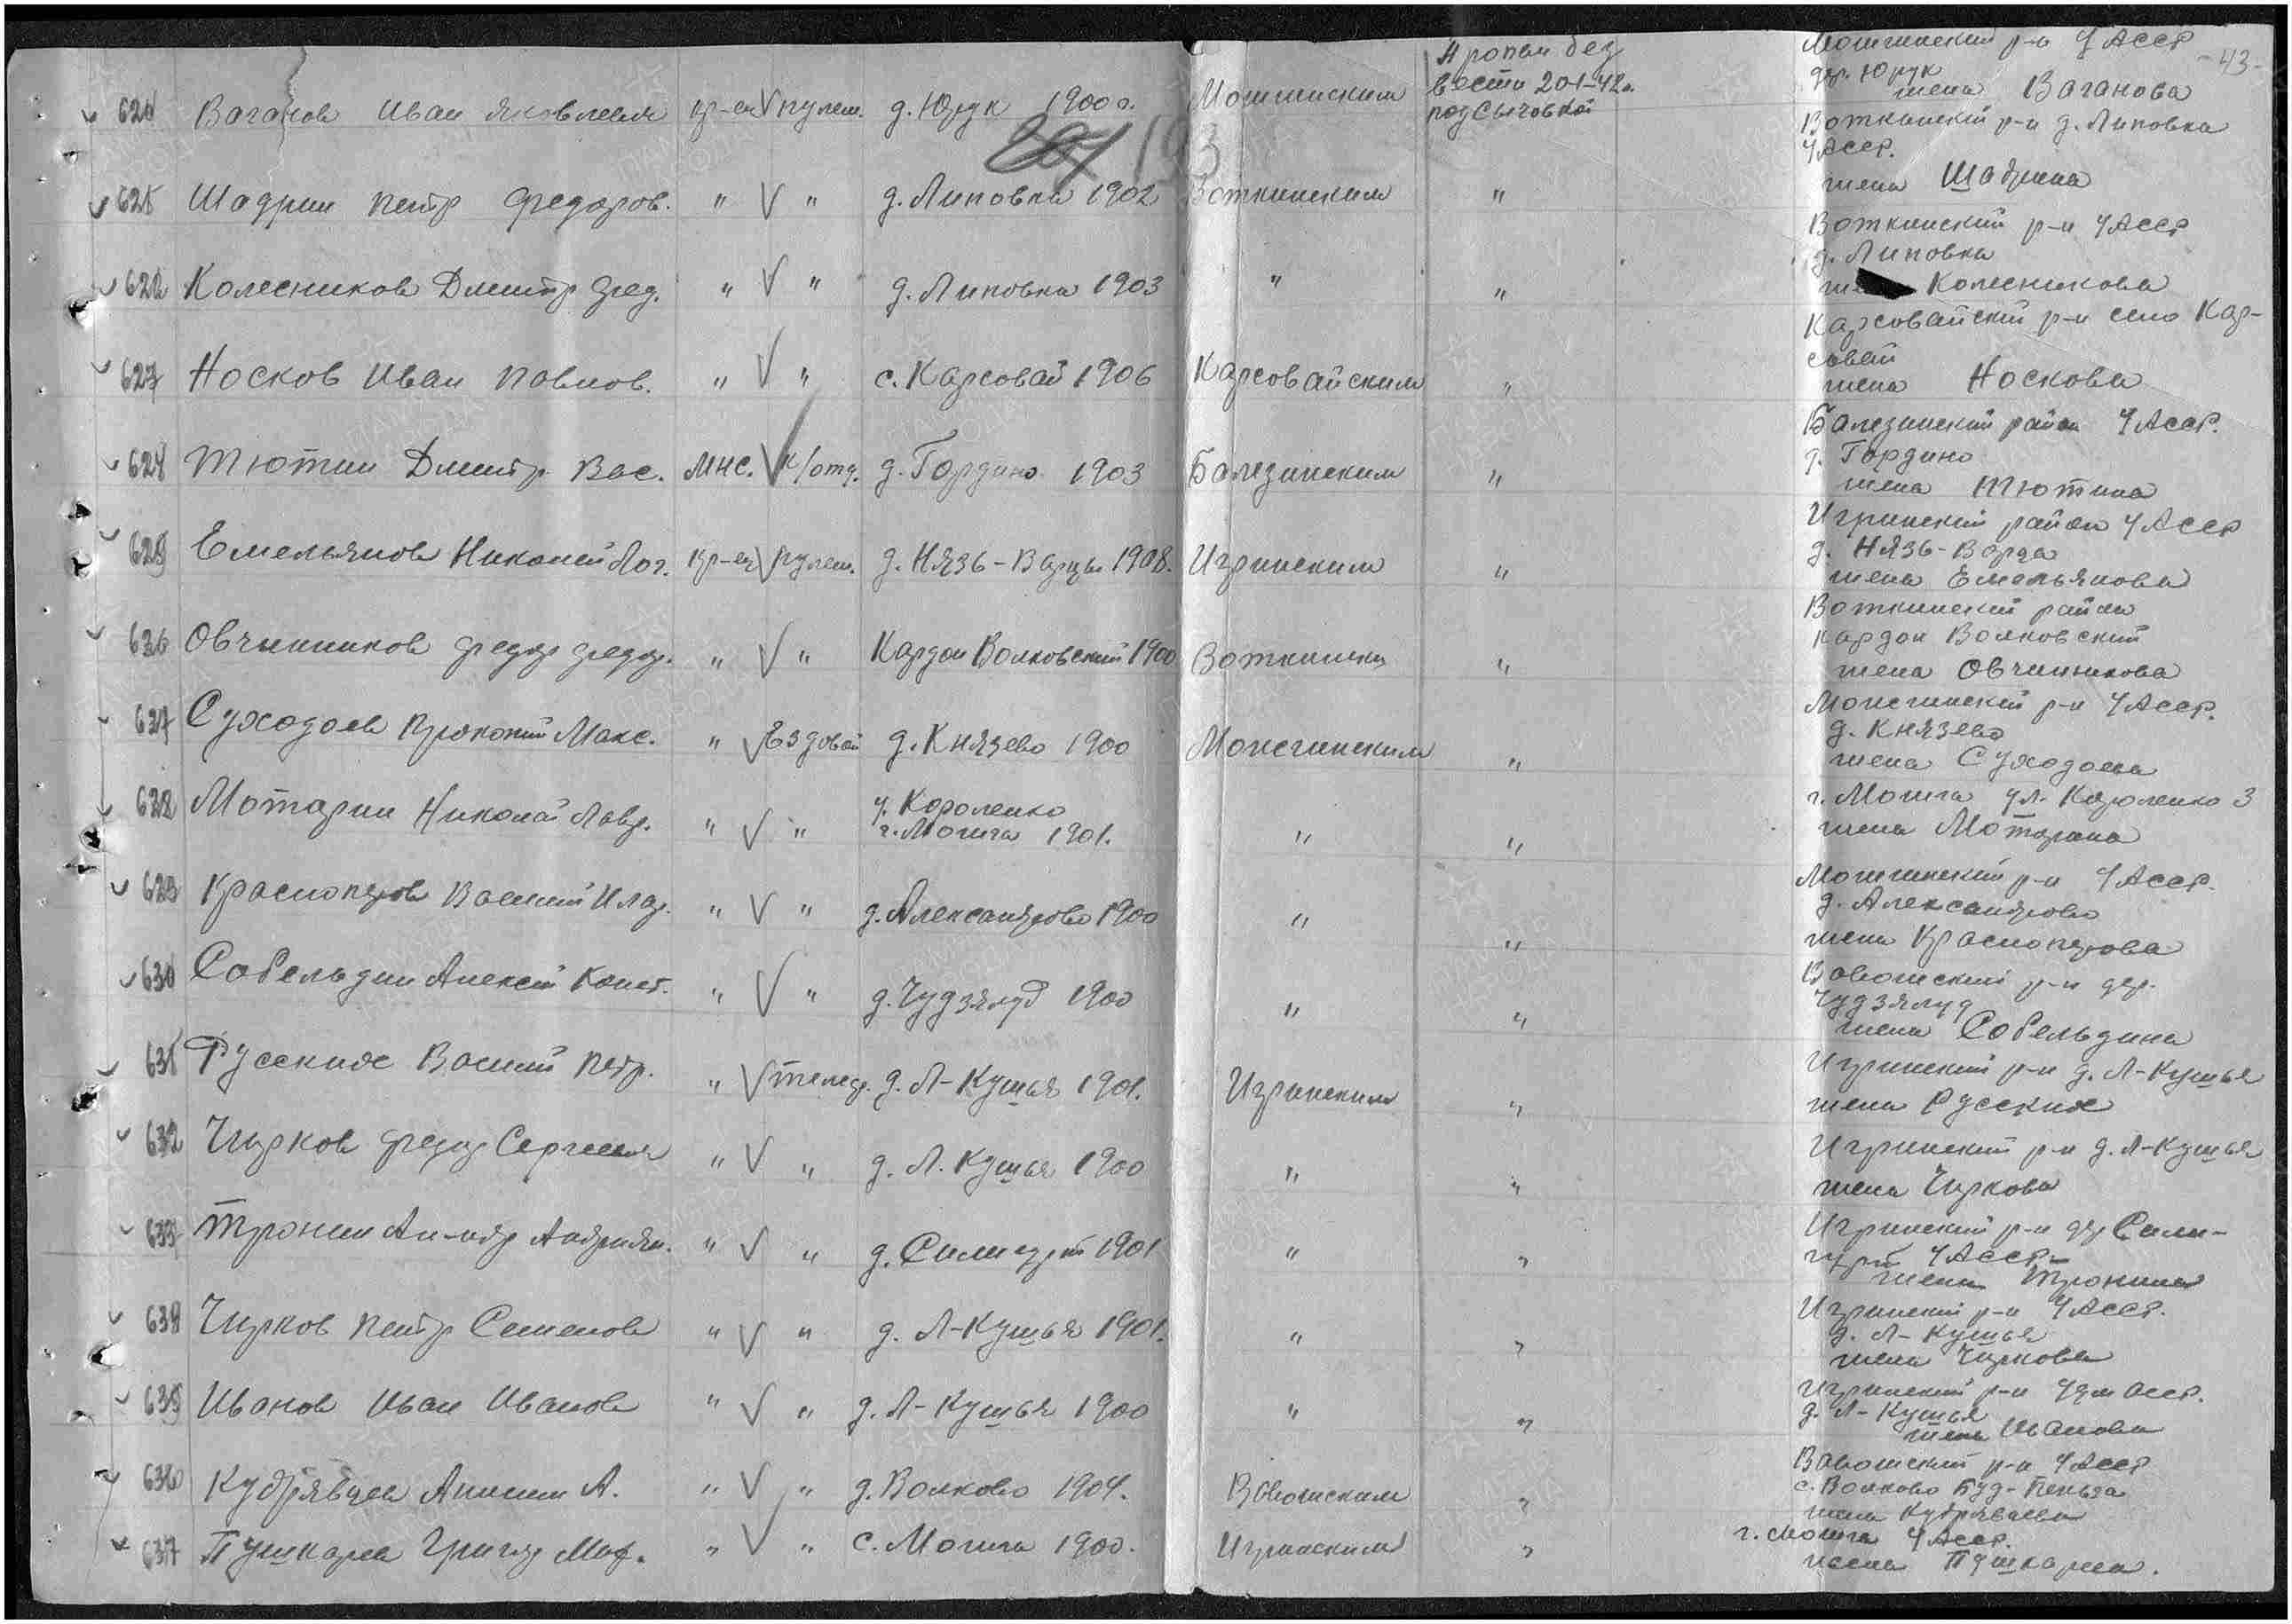 -43-
Ваганов Иван Яковлевич кр-ец V пулем. д. Юрук 1900 г. Можгинским Пропал без
вести 20-1-42г.
под Сычовкой Можгинский р-н УАССР
дер. Юрук
жена Ваганова
193
Шадрин Петр Федоров. " V " д. Липовка 1902 Воткинским " Воткинский р-н д. Липовка
УАССР.
жена Шадрина
Колесников Дмитр Фед. " V " д. Липовка 1903 " " Воткинский р-н УАССР
д. Липовка
Колесникова
Носков Иван Павлов. " V " с. Карсовай 1906 Карсовайским " Карсовайский р-н село Кар-
совай
жена Носкова
Тютин Дмитр. Вас. мнс. V к/отд. д. Гордино 1903 Балезинским " Балезинский район УАССР.
д. Гордино
жена Тютина
Емельянов Николай Лог. кр-ец V пулем. д. Нязь-Ворцы 1908. Игринским " Игринский район УАССР
д. Нязь-Ворца
жена Емельянова
Овчинников Федор Федор. " V " Кардон Волковский 1900 Воткински " Воткинский район
кардон Волковский
жена Овчинникова
Суходоев Прокопий Макс. " V Ездовой д. Князево 1900 Можгинским " Можгинский р-н УАССР.
д. Князево
жена Суходоева
628 Мотарин Николай Лавр. " V " у. Короленко
г. Можга 1901. " " г. Можга ул. Короленко 3
жена Мотарина
629 Красноперов Василий Илар. " V " д. Александрово 1900 " " Можгинский р-н УАССР.
д. Александрово
жена Красноперова
630 Собельдин Алексей Конст. " V " д. Чудзялуд 1900 " " Вавожский р-н дер.
Чудзялуд
жена Собельдина
631 Русских Василий Петр. " V телеф. д. Л-Кушья 1901. Игринским " Игринский р-н д. Л-Кушья
жена Русских
632 Чирков Федор Сергеевич " V " д. Л. Кушья 1900 " " Игринский р-н д. Л-Кушья
жена Чиркова
633 Тронин Ал-ндр Андриян. " V " д. Сепи 1901 " " Игринский р-н дер
УАССР
жена Тронина
634 Чирков Петр Семенов " V " д. Л-Кушья 1901. " " Игринский р-н УАССР.
д. Л-Кушья
жена Чиркова
635 Иванов Иван Иванов " V " д. Л-Кушья 1900 " " Игринский р-н Удм АССР.
д. Л-Кушья
жена Иванова
636 Кудрявцев Анисим А. " V " д. Волково 1904. Вавожским " Вавожский р-н УАССР
с. Волково
жена Кудрявцева
637 Пушкарев Григор Мат. " V " с. Можга 1900. Игринским " г. Можга УАССР.
жена Пушкарева.